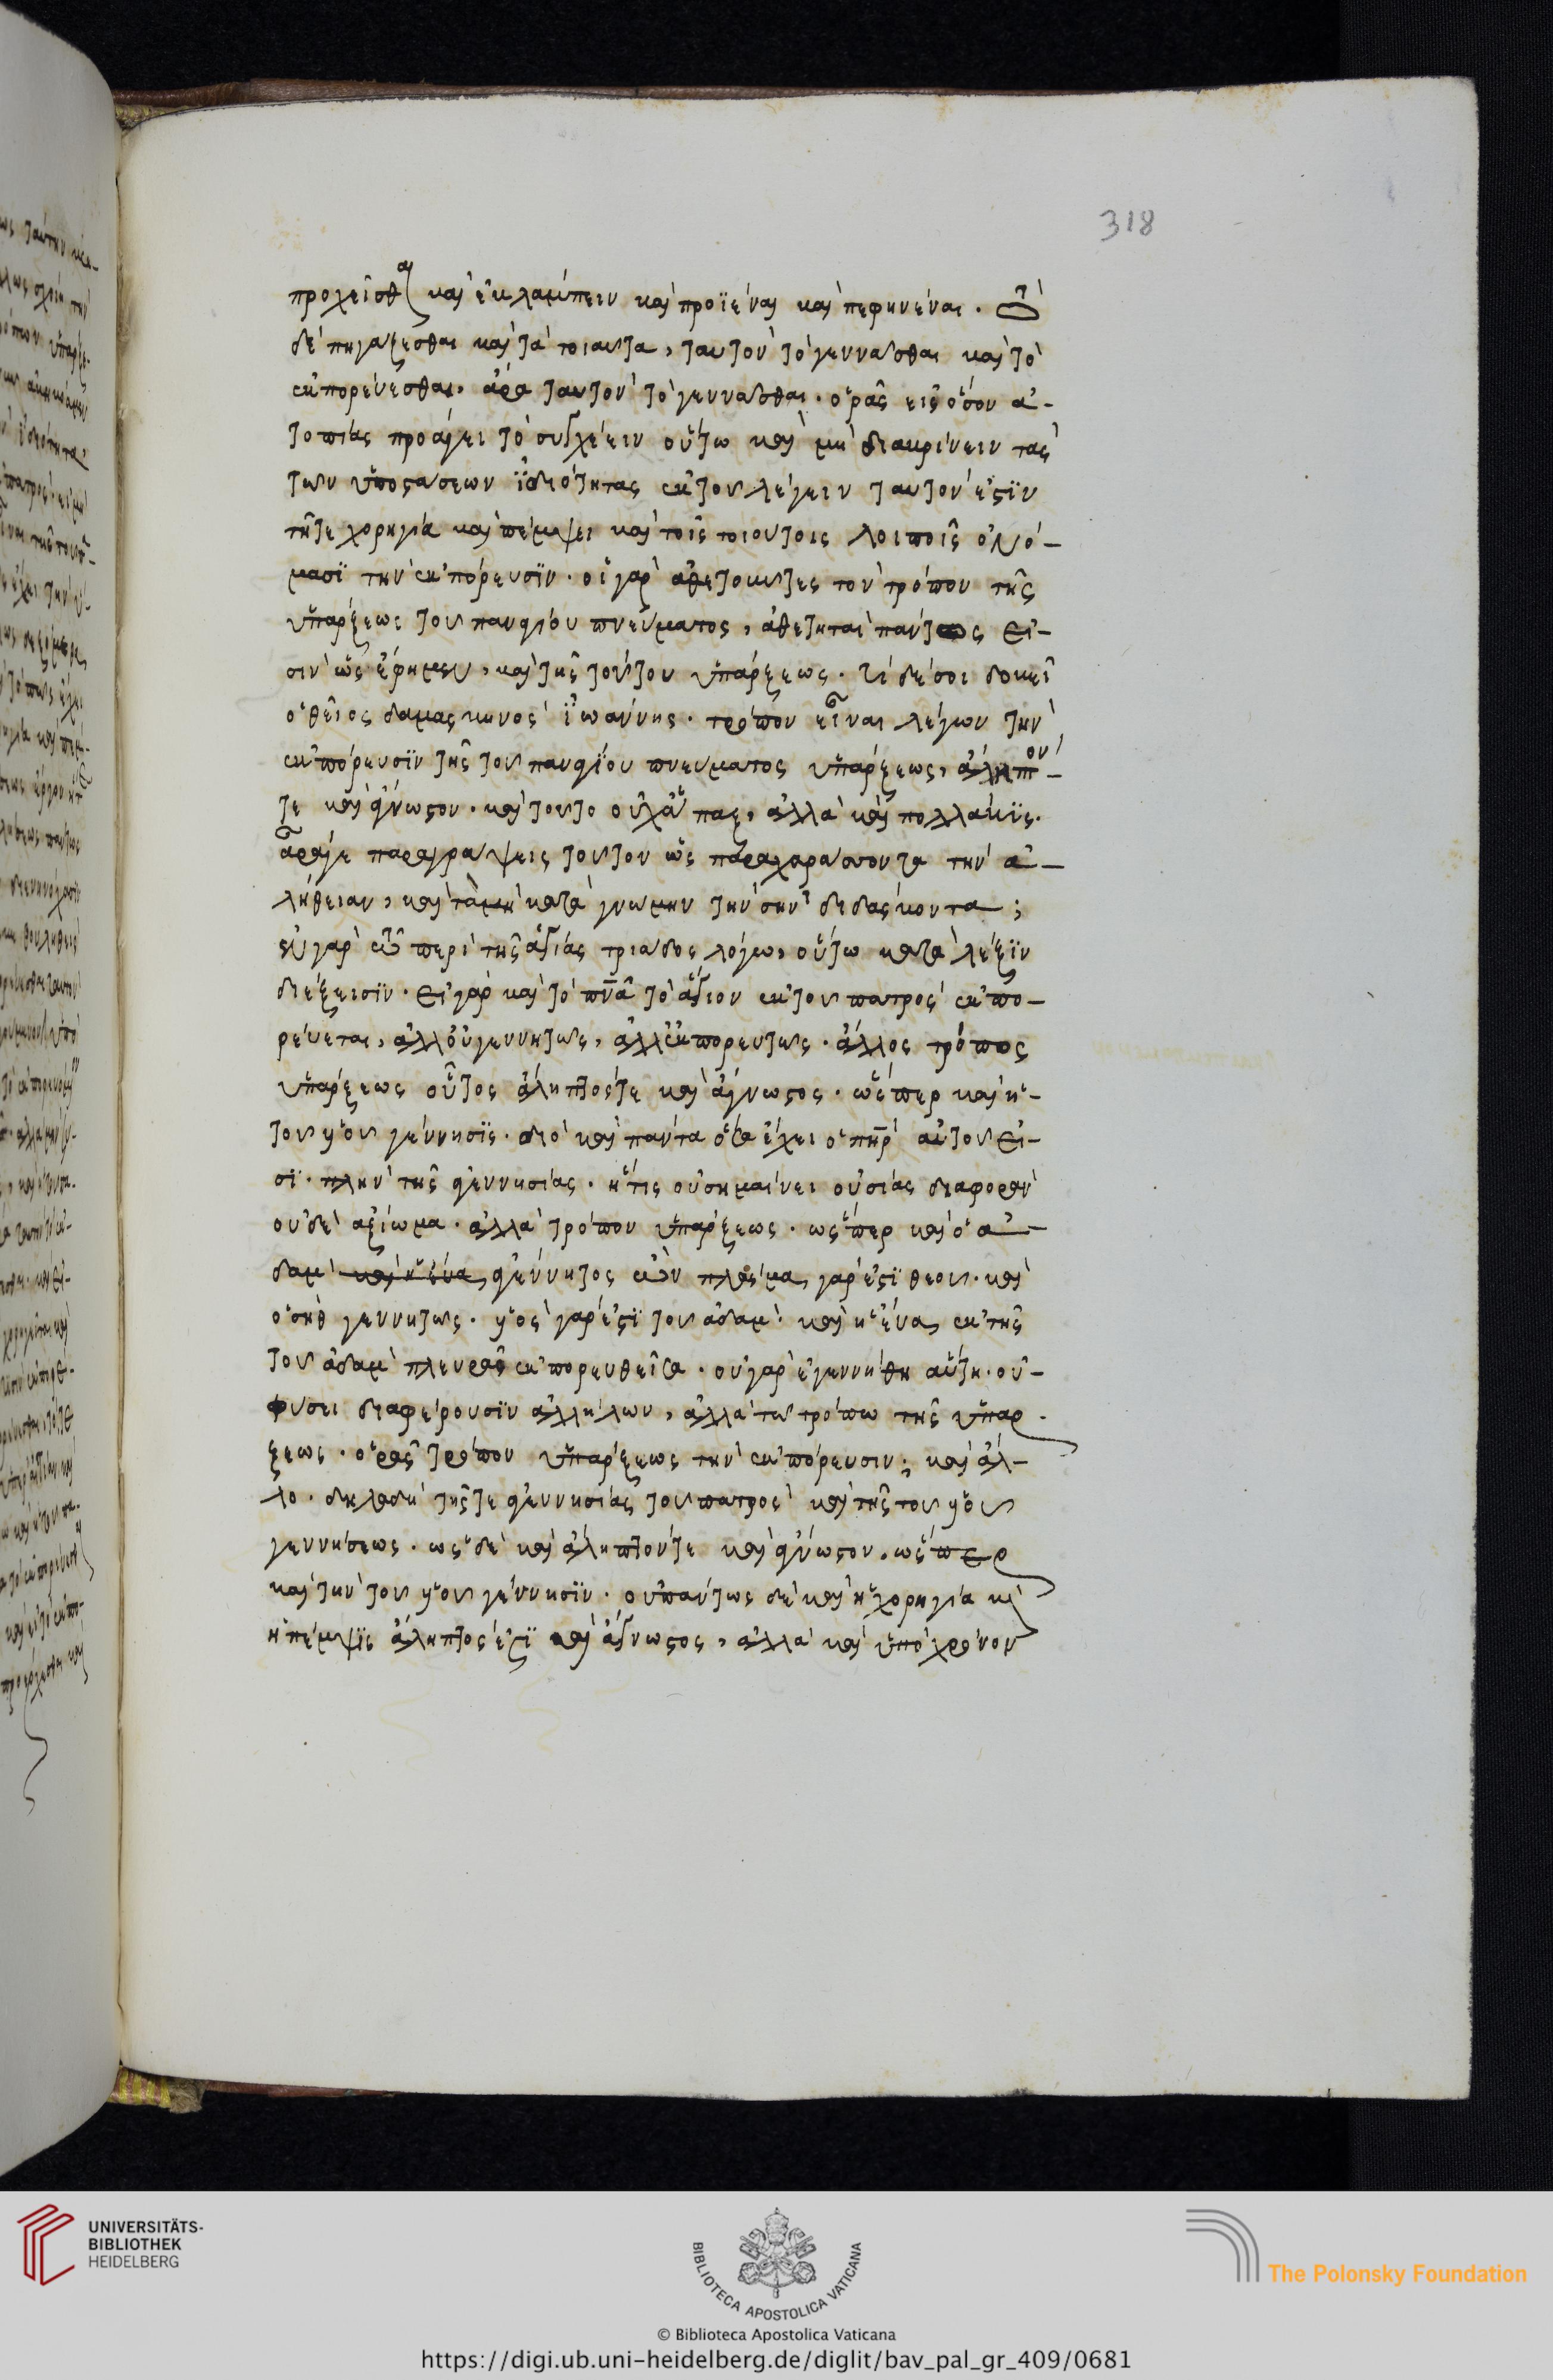 318
προχεῖσθαι καὶ ἐκλάμπειν καὶ προϊέναι καὶ πεφηνέναι. Εἰ
δὲ πηγάζεσθαι καὶ τὰ τοιαῦτα, ταυτὸν τὸ γεννᾶσθαι καὶ τὸ
ἐκπορεύεσθαι, ἆρα ταυτὸν τὸ γεννᾶσθαι. ὁρᾷς εἰς ὅσον ἀ-
τοπίας προάγει τὸ συγχέειν οὕτω καὶ μὴ διακρίνειν τὰς
τῶν ὑποστάσεων ἰδιότητας ἐκ τοῦ λέγειν ταυτὸν ἐστὶν
τῆτε χορηγία καὶ πέμψει καὶ τοῖς τοιούτοις λοιποῖς ὀνό-
μασι τὴν ἐκπόρευσιν. οἱ γὰρ ἀθετοῦντες τὸν τρόπον τῆς
ὑπάρξεως τοῦ παναγίου πνεύματος, ἀθετηταὶ πάντως εἰ-
σιν ὡς ἔφημεν, καὶ τῆς τούτου ὑπάρξεως. τί δέ σοι δοκεῖ
ὁ θεῖος δαμασκηνὸς ἰωάννης. τρόπον εἶναι λέγων τὴν
ἐκπόρευσιν τῆς τοῦ παναγίου πνεύματος ὑπάρξεως, ἄληπτόν-
τε καὶ ἄγνωστον. καὶ τοῦτο οὐχ ἅπαξ, ἀλλὰ καὶ πολλάκις.
ἆράγε παραγράψεις τοῦτον ὡς παραχαράσσοντα τὴν ἀ-
λήθειαν, καὶ τὰ μὴ κατὰ γνώμην τὴν σὴν διδάσκοντα;
ἐν γὰρ τῷ περὶ τῆς ἁγίας τριάδος λόγω, οὕτω κατὰ λέξιν
διέξεισιν. Εἰ γὰρ καὶ τὸ πνα τὸ ἅγιον ἐκ τοῦ πατρὸς ἐκπο-
ρεύεται, ἀλλ οὐ γεννητῶς, ἀλλ ἐκπορευτῶς. ἄλλος τρόπος
ὑπάρξεως οὗτος ἄληπτός τε καὶ ἄγνωστος. ὥσπερ καὶ ἡ
τοῦ υἱοῦ γέννησις. διὸ καὶ πάντα ὅσα ἔχει ὁ πηρ αὐτοῦ εἰ-
σι. πλὴν τῆς ἀγεννησίας. ἥτις οὐ σημαίνει οὐσίας διαφορὰν
οὐδὲ ἀξίωμα. ἀλλὰ τρόπον ὑπάρξεως. ὥσπερ καὶ ὁ ἀ-
δὰμ καὶ ἡ εὔα, ἀγέννητος ὢν πλάσμα, γάρ ἐστι θεοῦ. καὶ
ὁ σὴθ γεννητῶς. υἱὸς γάρ ἐστι τοῦ ἀδάμ. καὶ ἡ εὔα, ἐκ τῆς
τοῦ ἀδὰμ πλευρᾶς ἐκπορευθεῖσα. οὐ γὰρ ἐγεννήθη αὕτη. οὐ
φύσει διαφέρουσιν ἀλλήλων, ἀλλὰ τῶ τρόπω τῆς ὑπάρ-
ξεως. ὁρᾷς τρόπον ὑπάρξεως τὴν ἐκπόρευσιν; καὶ ἄλ-
λο. δηλαδὴ τῆς τε ἀγεννησίας τοῦ πατρὸς καὶ τῆς τοῦ υἱοῦ
γεννήσεως. ὡς δὲ καὶ ἄληπτόν τε καὶ ἄγνωστον, ὥσπερ
καὶ τὴν τοῦ υἱοῦ γέννησιν. οὐ πάντως δὲ καὶ ἡ χορηγία κὶ
ἡ πέμψις ἄληπτός ἐστι καὶ ἄγνωστος, ἀλλὰ καὶ ὑπὸ χρόνον
UNIVERSITÄTS-
BIBLIOTHEK
HEIDELBERG
BIBLIOTECA APOSTOLICA VATICANA
The Polonsky Foundation
© Biblioteca Apostolica Vaticana
https://digi.ub.uni-heidelberg.de/diglit/bav_pal_gr_409/0681